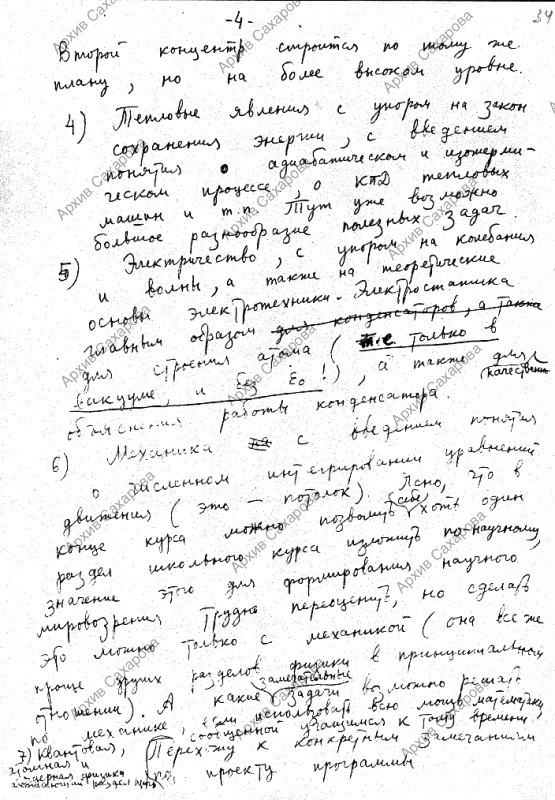 -4-
34
Второй концентр строится по тому же
плану, но на более высоком уровне.
4) Тепловые явления с упором на закон
сохранения энергии, с введением
понятия о адиабатическом и изотерми-
ческом процессе, о КПД тепловых
машин и т.п. Тут уже возможно
большое разнообразие полезных задач.
5) Электричество, с упором на колебания
и волны, а также на теоретические
основы электротехники. Электростатика
главным образом для конденсаторов, а также
для строения атома (т.е. только в
вакууме, и без ε₀!), а также для качественн
объяснения работы конденсатора.
6) Механика на с введением понятия
о численном интегрировании уравнений
движения (это – потолок). Ясно, что в
конце курса можно позволить себе хоть один
раздел школьного курса изложить по-научному,
значение этого для формирования научного
мировоззрения трудно переоценить, но сделать
это можно только с механикой (она все же
проще других разделов физики в принципиальном
отношении). А какие замечательные задачи возможно решать
по механике, если использовать всю мощь математики,
сообщенной учащимся к тому времени.
7) Квантовая,
атомная и
ядерная физика
Перехожу к конкретным замечаниям
по проекту программы
Архив Сахарова